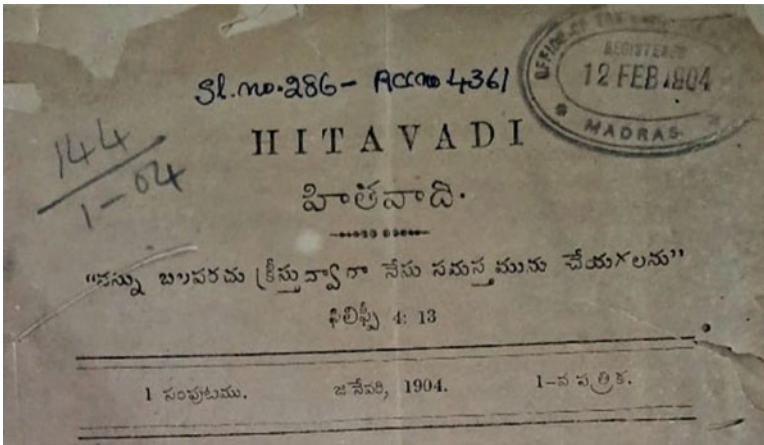 Sl.no.286- Accno 4361
REGISTERED
12 FEB 1904
MADRAS
144
1-04
HITAVADI
హితవాది.
"నన్ను బలపరచు క్రీస్తుద్వారా నేను సమస్తమును చేయగలను"
ఫిలిప్పీ 4: 13
1 సంపుటము. జనేవరి, 1904. 1-వ పత్రిక.